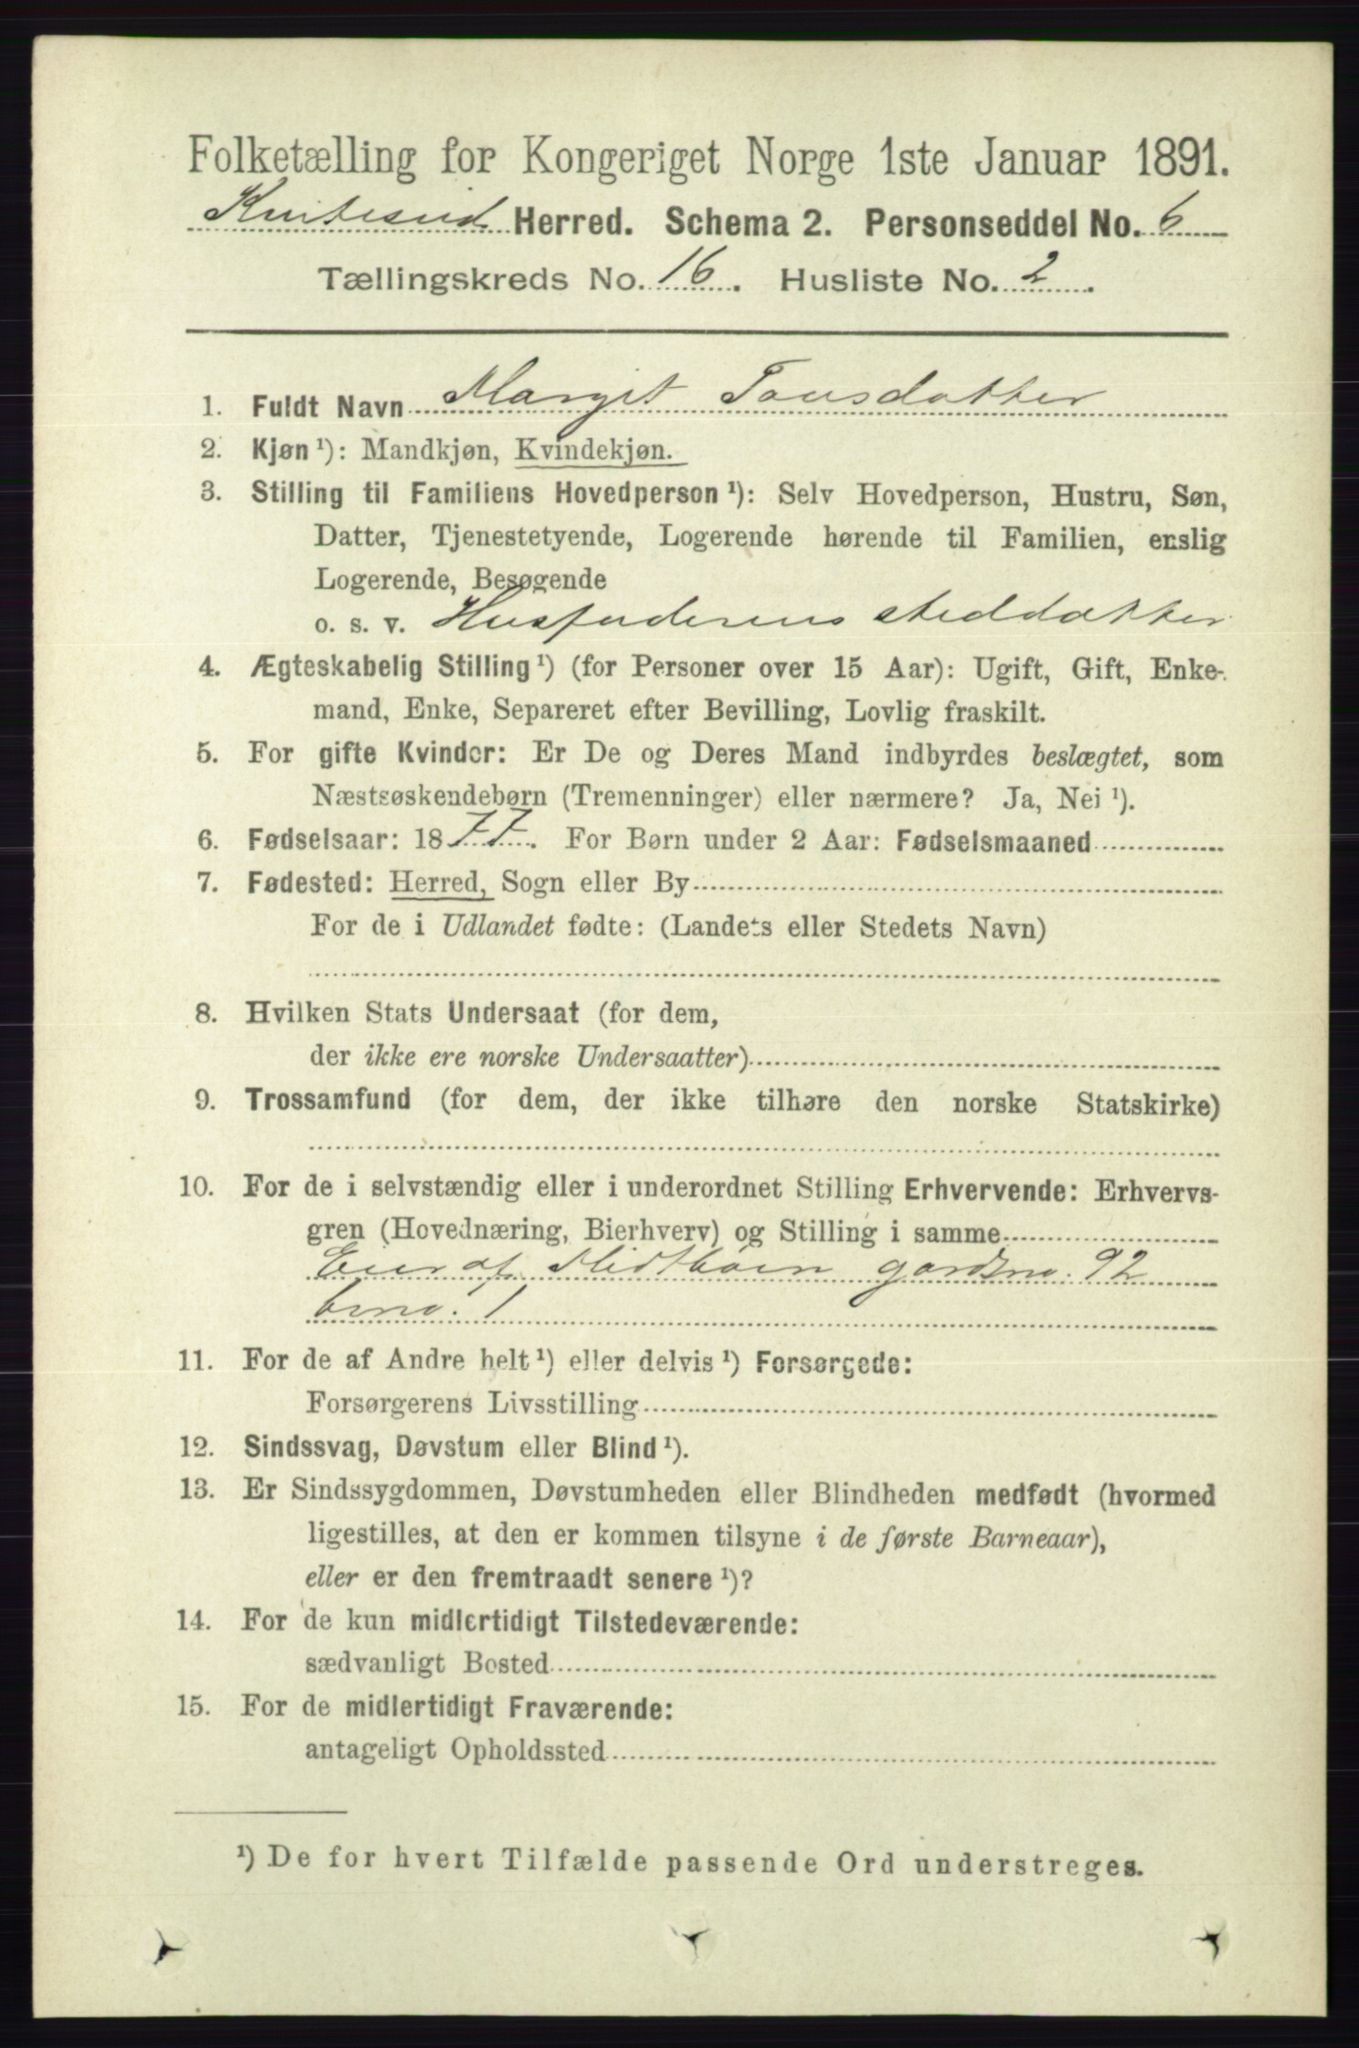 Folketælling for Kongeriget Norge 1ste Januar 1891.
Kviteseid Herred. Schema 2. Personseddel No. 6
Tællingskreds No. 16. Husliste No. 2.
1. Fuldt Navn Margit Tovsdatter
2. Kjøn ¹): Mandkjøn, Kvindekjøn.
3. Stilling til Familiens Hovedperson ¹): Selv Hovedperson, Hustru, Søn,
Datter, Tjenestetyende, Logerende hørende til Familien, enslig
Logerende, Besøgende
o. s. v. Husfaderens steddatter
4. Ægteskabelig Stilling ¹) (for Personer over 15 Aar): Ugift, Gift, Enke-
mand, Enke, Separeret efter Bevilling, Lovlig fraskilt.
5. For gifte Kvinder: Er De og Deres Mand indbyrdes beslægtet, som
Næstsøskendebørn (Tremenninger) eller nærmere? Ja, Nei ¹).
6. Fødselsaar: 1877. For Børn under 2 Aar: Fødselsmaaned
7. Fødested: Herred, Sogn eller By
For de i Udlandet fødte: (Landets eller Stedets Navn)
8. Hvilken Stats Undersaat (for dem,
der ikke ere norske Undersaatter)
9. Trossamfund (for dem, der ikke tilhøre den norske Statskirke)
10. For de i selvstændig eller i underordnet Stilling Erhvervende: Erhvervs-
gren (Hovednæring, Bierhverv) og Stilling i samme
Eier af Midtbøen gardsno. 92
brno. 1
11. For de af Andre helt ¹) eller delvis ¹) Forsørgede:
Forsørgerens Livsstilling
12. Sindssvag, Døvstum eller Blind ¹).
13. Er Sindssygdommen, Døvstumheden eller Blindheden medfødt (hvormed
ligestilles, at den er kommen tilsyne i de første Barneaar),
eller er den fremtraadt senere ¹)?
14. For de kun midlertidigt Tilstedeværende:
sædvanligt Bosted
15. For de midlertidigt Fraværende:
antageligt Opholdssted
¹) De for hvert Tilfælde passende Ord understreges.